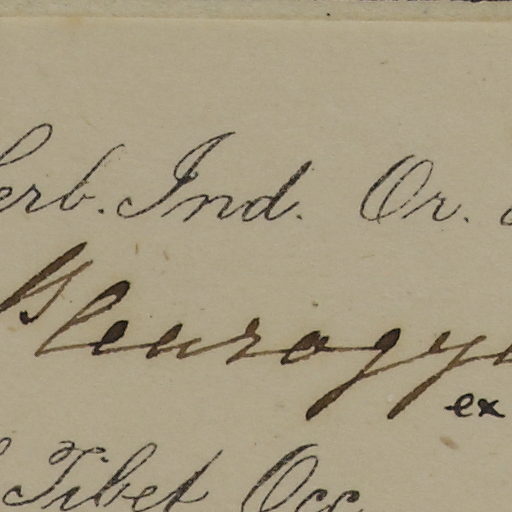 erb. Ind. Or.
Pleurogy
ex
Tibet Occ